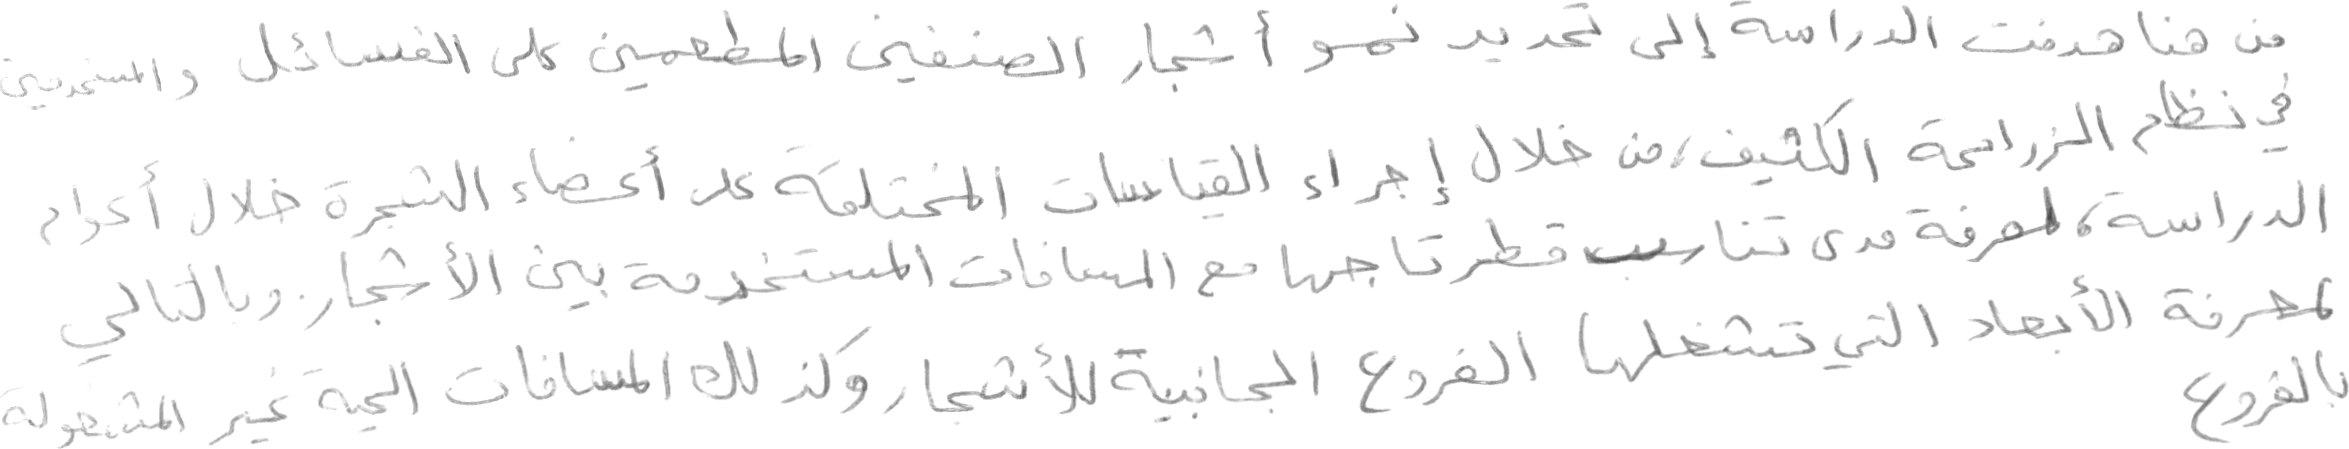 من هنا هدفت الدراسة إلى تحديد نمو أشجار الصنفين المطعمين على الفسائل والمستخدمين
في نظام الزراعة الكثيف، من خلال إجراء القياسات المختلفة على أعضاء الشجرة خلال أعوام
الدراسة، لمعرفة مدى تناسب قطر تاجها مع المسافات المستخدمة بين الأشجار. وبالتالي
لمعرفة الأبعاد التي تشغلها الفروع الجانبية للأشجار وكذلك المسافات الحية غير المشغولة
بالفروع